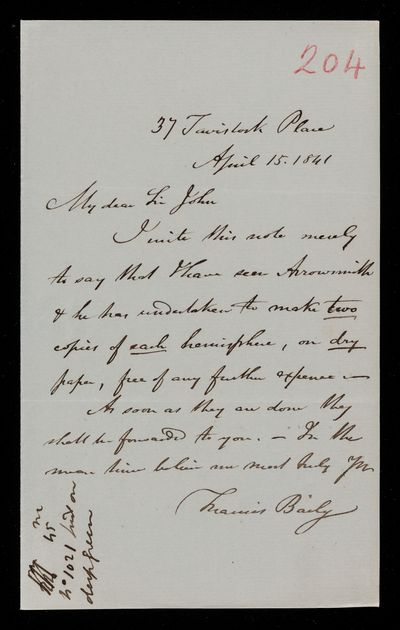 204
37 Tavistock Place
April 15. 1841
My dear Sir John
I write this note merely
to say that I have seen Arrowsmith
& he has undertaken to make two
copies of each hemisphere, on dry
paper, free of any further expence —
As soon as they are done they
shall be forwarded to you. — In the
mean time believe me most truly Yrs
Francis Baily
45
No 1021
deep green